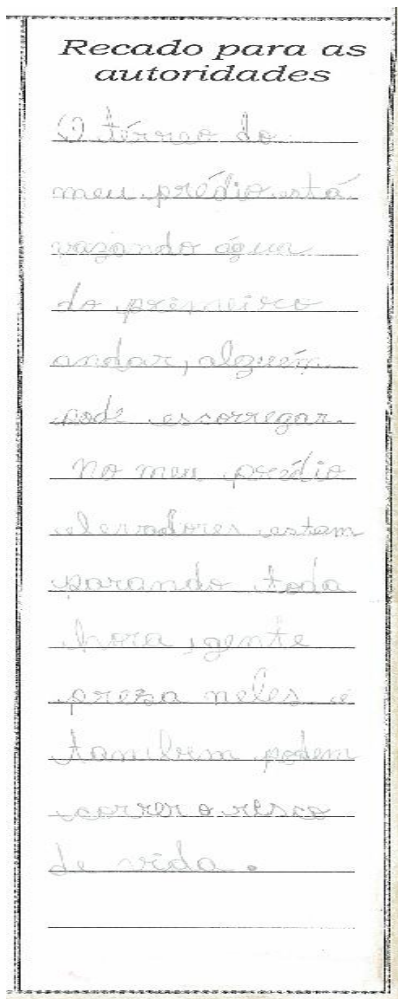 Recado para as
autoridades
O térreo do
meu prédio está
vazando água
do primeiro
andar, alguém
pode escorregar.
No meu prédio
elevadores estam
parando toda
hora, gente
preza neles e
tambem podem
correr o risco
de vida.